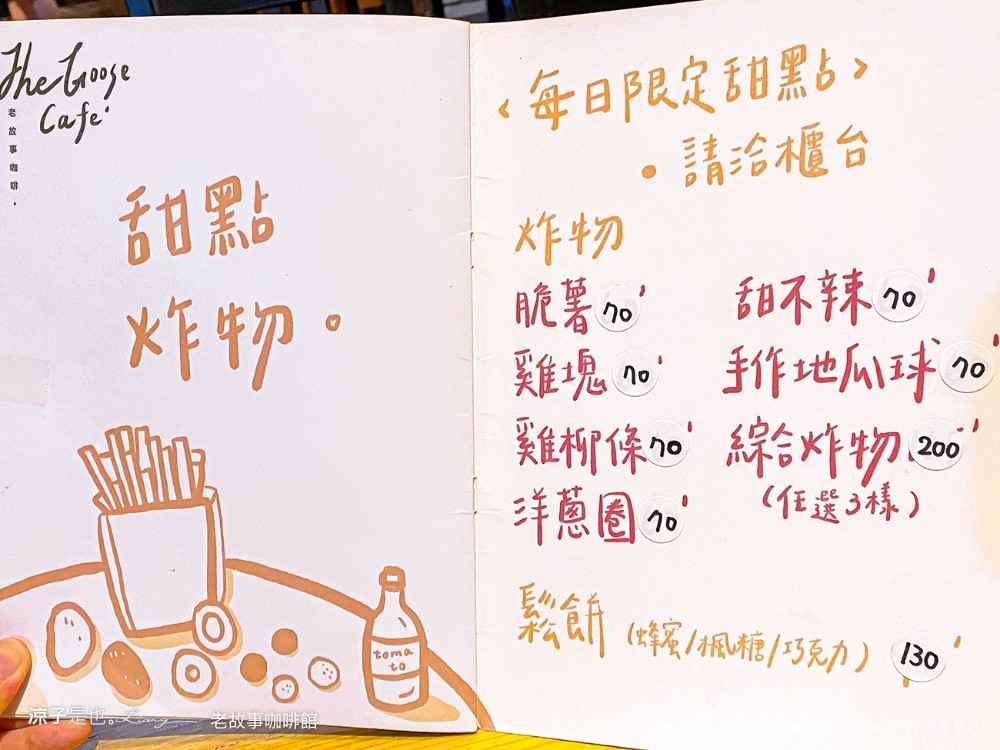 The Goose
Cafe
老故事咖啡.
甜點
炸物。
toma
to
<每日限定甜點>
•請洽櫃台
炸物
脆薯 70'
甜不辣 70'
雞塊 70'
手作地瓜球 70'
雞柳條 70'
綜合炸物. 200
(任選3樣)
洋蔥圈 70'
鬆餅 (蜂蜜/楓糖/巧克力) 130'
涼子是也。
老故事咖啡館